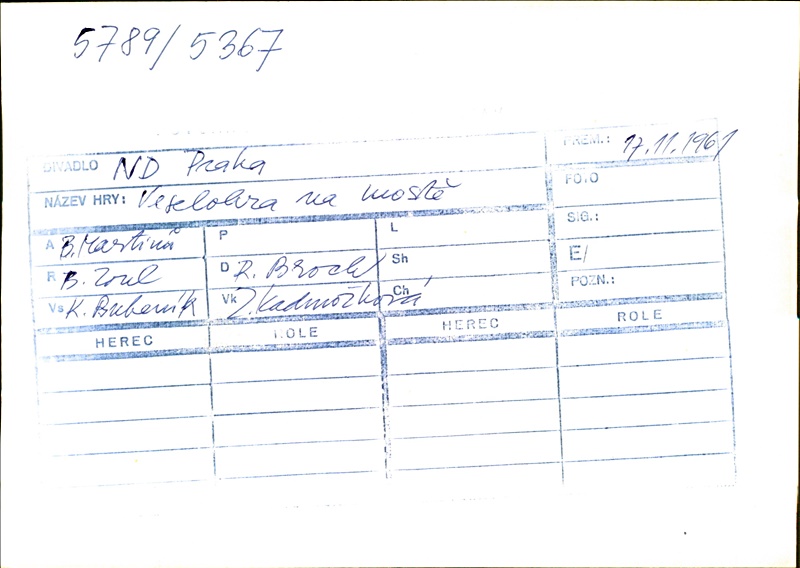 5789/5367
DIVADLO ND Praha
PREM.: 17.11.1961
NÁZEV HRY: Veselohra na mostě
FOTO
SIG.:
E/
POZN.:
A B. Martinů P L
R B. Zoul D R. Brock Sh
Vs K. Bubeník Vk J. Kadrnožková Ch
HEREC ROLE HEREC ROLE